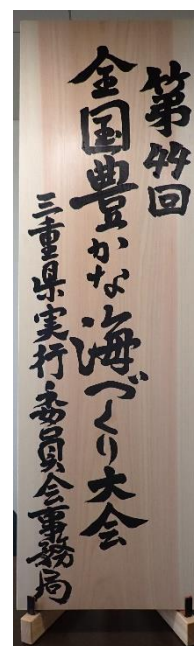 第44回
全国豊かな海づくり大会
三重県実行委員会事務局